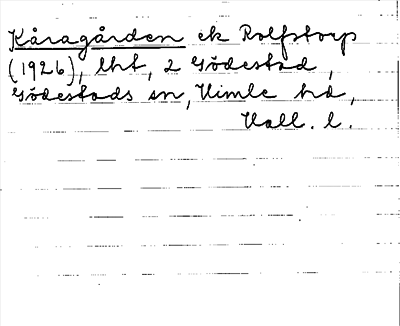 Kåragården ek Rolfstorp
(1926), lht, 2 Gödestad,
Gödestads sn, Himle hd,
Hall. l.